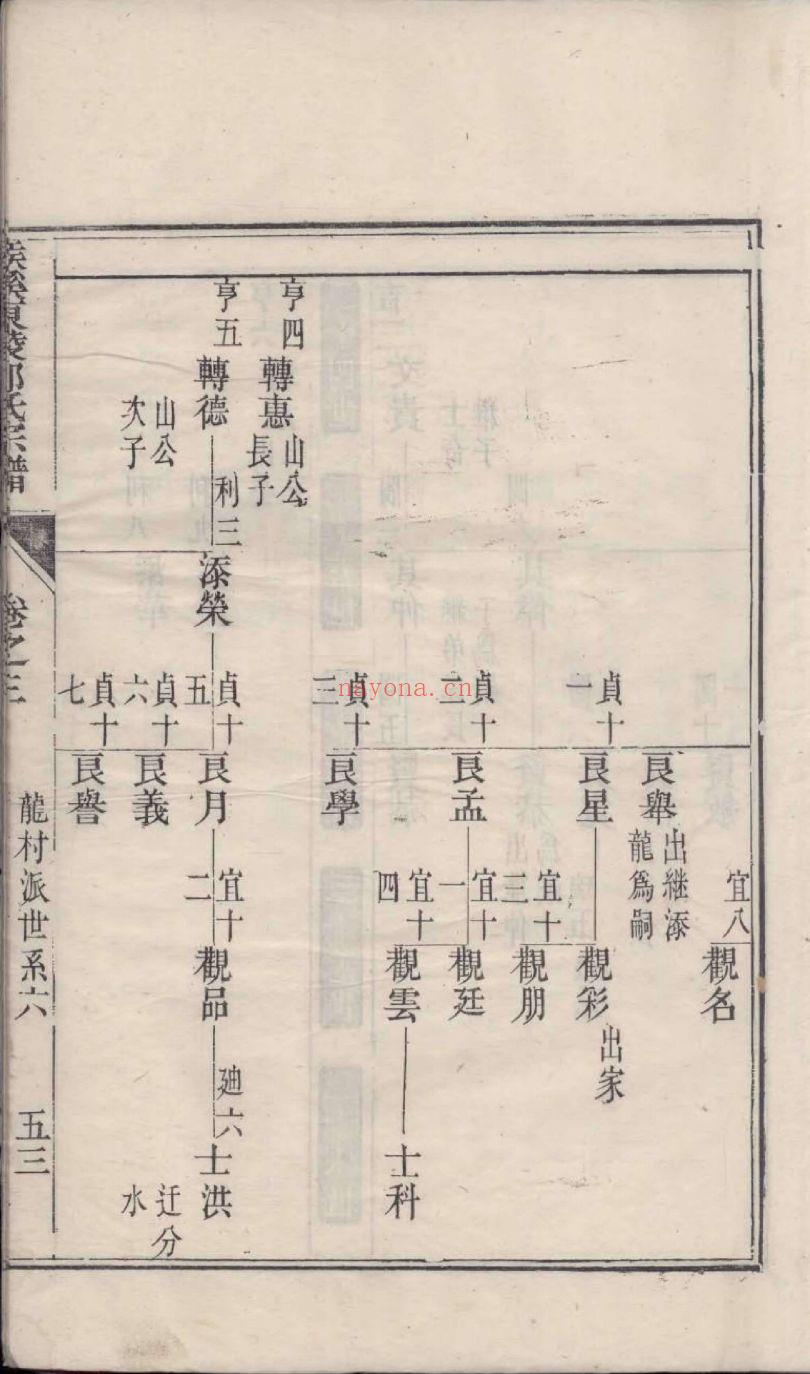 宜八
觀名
良舉
出継添
龍爲嗣
貞十一
良星
觀彩
出家
宜十三
觀朋
貞十二
良孟
宜十一
觀廷
宜十四
觀雲
士科
貞十三
良學
亨四
轉惠
山公
長子
亨五
轉德
利三
添榮
貞十五
良月
宜十二
觀品
廸六
士洪
山公
次子
迁分
水
貞十六
良義
貞十七
良譽
東陵邵氏宗譜
卷之三
龍村派世系六
五三
nayona.cn